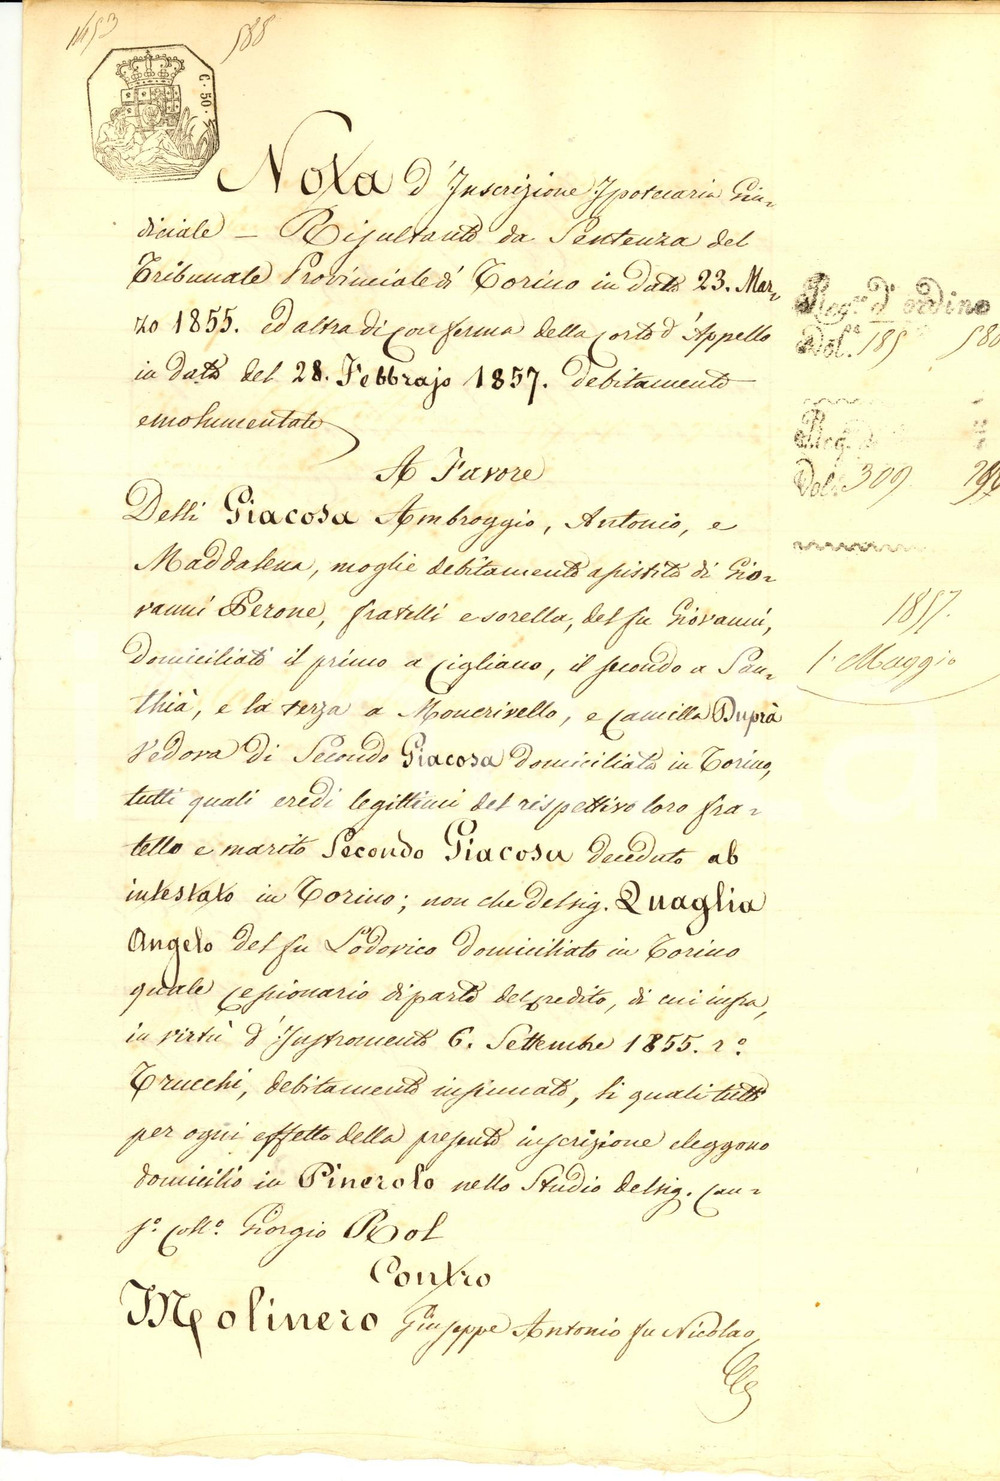 1153
588
C. 50.
Nota d'Inscrizione Ipotecaria Giu-
diciale — Risultante da Sentenza del
Tribunale Provinciale di Torino in data 23. Mar-
zo 1855. ed altra di conferma della Corte d'Appello
in data del 28. Febbrajo 1857. debitamente
emolumentate
A Favore
Delli Giacosa Ambroggio, Antonio, e
Maddalena, moglie debitamente assistita di Gio-
vanni Perone, fratelli e sorella, del fu Giovanni,
domiciliati il primo a Cigliano, il secondo a San-
thià, e la terza a Moncrivello, e Camilla Duprà
Vedova di Secondo Giacosa domiciliata in Torino,
tutti quali eredi legittimi del rispettivo loro fra-
tello e marito Secondo Giacosa deceduto ab
intestato in Torino; non che del sig. Quaglia
Angelo del fu Lodovico domiciliato in Torino
quale cessionario di parte del credito, di cui infra,
in virtù d'Instromento 6. Settembre 1855. r.o
Trucchi, debitamente insinuato, li quali tutti
per ogni effetto della presente inscrizione eleggono
domicilio in Pinerolo nello Studio del sig. Cau-
s.o Coll.o Giorgio Rol
Contro
Molinero Giuseppe Antonio fu Nicolao,
Reg.o d'ordine
Vol. 185 580
Reg.
Vol. 309
1857.
1. Maggio